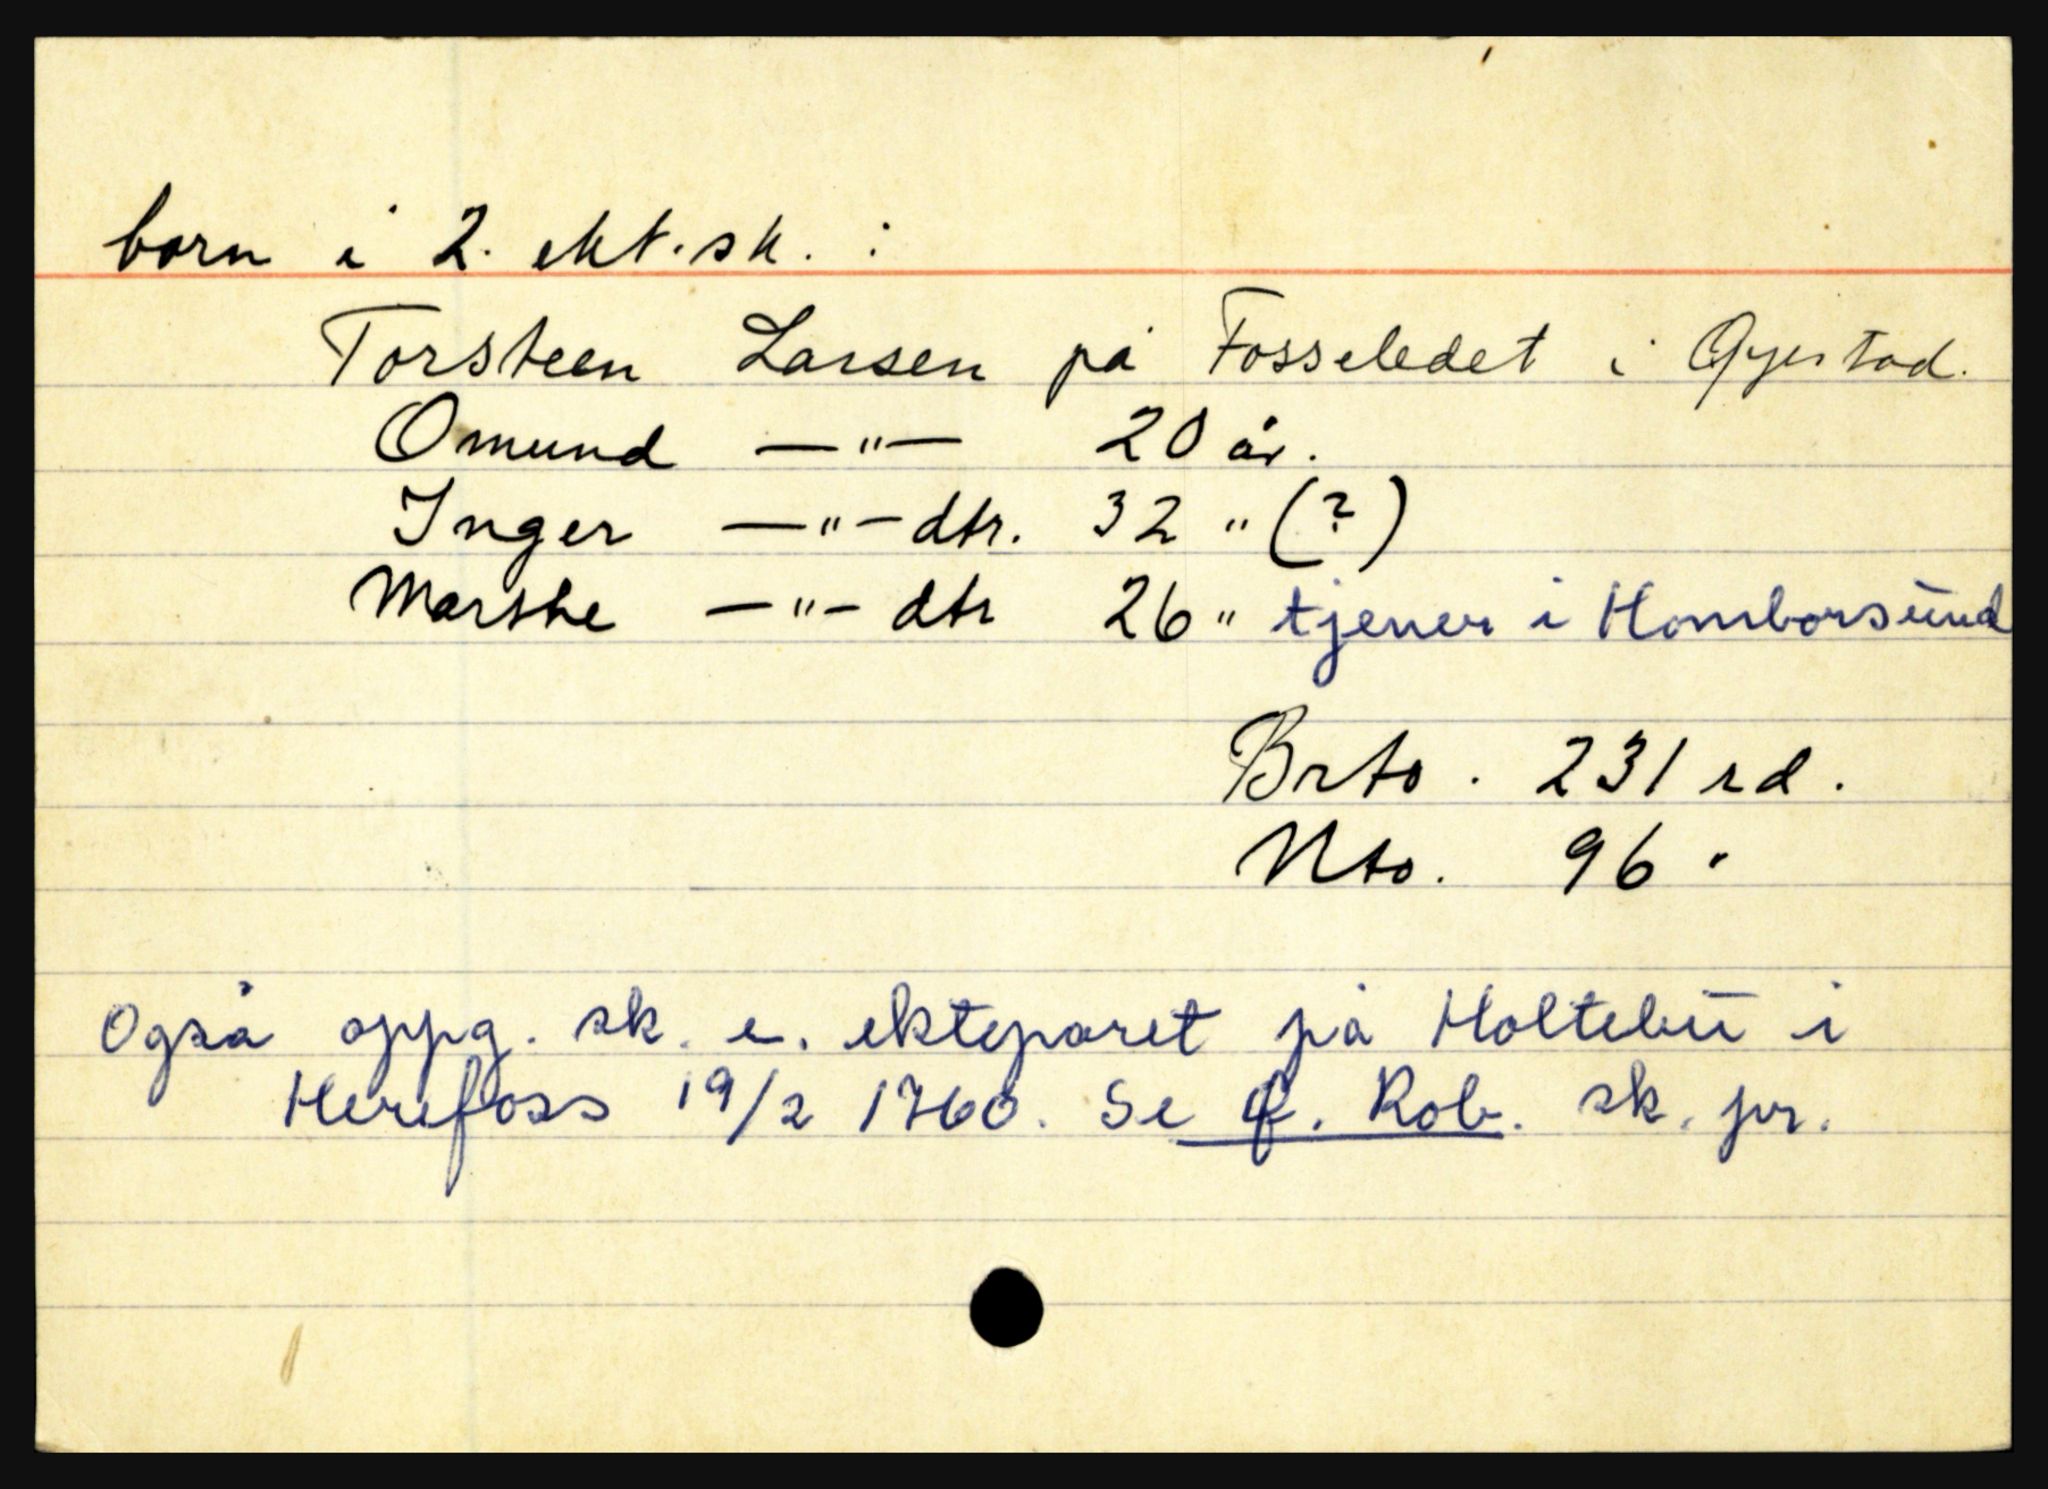 born i 2. ekt.sk. :
Torsteen Larsen på Fosseledet i Øyestad.
Omund —"— 20 år.
Inger —"— dtr. 32 " (?)
Marthe —"— dtr 26 " tjener i Homborsund
Brto. 231 rd.
Nto. 96 "
Også oppg. sk. e. ekteparet på Holtebu i
Herefoss 19/2 1760. Se f. Rob. sk. pr.